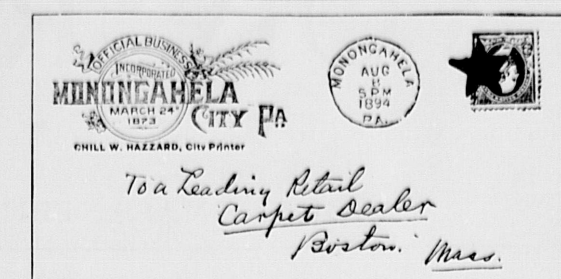 OFFICIAL BUSINESS
INCORPORATED
MONONGAHELA
CITY PA
MARCH 24
1873
CHILL W. HAZZARD, City Printer
MONONGAHELA
AUG
8
5 PM
1894
PA.
To a Leading Retail
Carpet Dealer
Boston.
Mass.